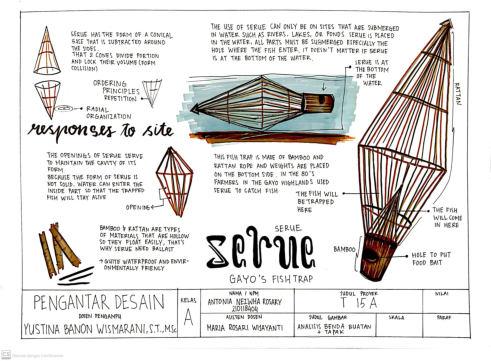 SERUE HAS THE FORM OF A CONICAL
BASE THAT IS SUBTRACTED AROUND
THE SIDES.
THAT 2 CONES DIVIDE PORTION
AND LOCK THEIR VOLUME (FORM
COLLISION)
ORDERING
PRINCIPLES
REPETITION
RADIAL
ORGANIZATION
THE USE OF SERUE CAN ONLY BE ON SITES THAT ARE SUBMERGED
IN WATER SUCH AS RIVERS, LAKES, OR PONDS. SERUE IS PLACED
IN THE WATER. ALL PARTS MUST BE SUBMERGED ESPECIALLY THE
HOLE WHERE THE FISH ENTER. IT DOESN'T MATTER IF SERUE
IS AT THE BOTTOM OF THE WATER.
SERUE IS AT
THE BOTTOM
OF THE
WATER
RATTAN
responses to site
THE OPENINGS OF SERUE SERVE
TO MAINTAIN THE CAVITY OF ITS
FORM.
BECAUSE THE FORM OF SERUE IS
NOT SOLID. WATER CAN ENTER THE
INSIDE PART SO THAT THE TRAPPED
FISH WILL STAY ALIVE
OPENING
THIS FISH TRAP IS MADE OF BAMBOO AND
RATTAN ROPE AND WEIGHTS ARE PLACED
ON THE BOTTOM SIDE. IN THE 80'S
FARMERS IN THE GAYO HIGHLANDS USED
SERUE TO CATCH FISH
THE FISH WILL
BE TRAPPED
HERE
THE FISH
WILL COME
IN HERE
BAMBOO & RATTAN ARE TYPES
OF MATERIALS THAT ARE HOLLOW
SO THEY FLOAT EASILY, THAT'S
WHY SERUE NEED BALLAST
→ QUITE WATERPROOF AND ENVIR-
ONMENTALLY FRIENLY
SERUE
serue
GAYO'S FISH TRAP
BAMBOO
HOLE TO PUT
FOOD BAIT
PENGANTAR DESAIN
DOSEN PENGAMPU
YUSTINA BANON WISMARANI, S.T., M.Sc
KELAS
A
NAMA / NPM
ANTONIA NEZWHA ROSARY
ASISTEN DOSEN
MARIA ROSARI WIJAYANTI
JUDUL PROYEK
T 15 A
JUDUL GAMBAR
ANALISIS BENDA BUATAN
+ TAPAK
SKALA
NILAI
PARAF